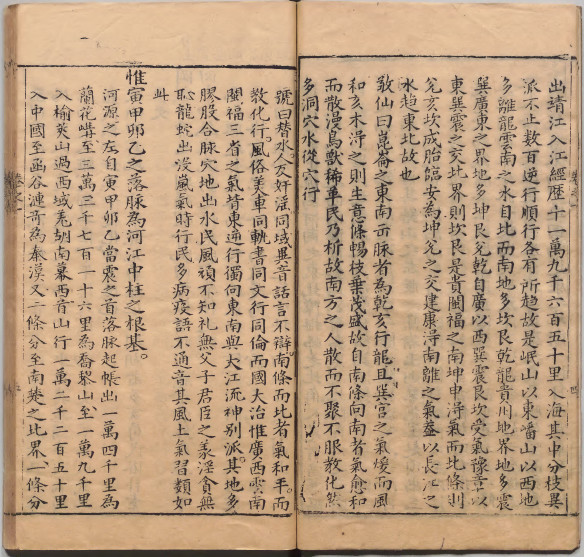 出靖江入江經歷十一萬九千六百五十里入海其中分枝異
派不止数百逆行順行各有所趋故是岷山以東嶓山以西地
多離龍雲南之水自北而南地多坎艮乾龍貴川地界地多震
巽廣東之界地多坤艮兌乾自廣以西巽震艮坎受氣豫章以
東巽震之交北界則坎艮是貴閩福之南坤申淂氣而北條則
兌亥坎成胎臨安為坤兌之交建康淂南離之氣盖以長江之
水趋東北故也
敎仙曰崑崙之東南而脉者為乾亥行龍且巽宮之氣煖而風
和亥木淂之則生意條暢枝垂茂盛故自南條向南者氣愈和
而散漫鳥獸稀革民乃析故南方之人散而不聚不服敎化然
多洞穴水從穴行
號曰瞀水人多奸淫同域異音話言不辯南條而北者氣和平。而
敎化行風俗美車同軌書同文行同倫而國大治惟廣西雲南
閩福三省之氣背東逆行獨向東南與大江流神别派。其地多
膠股合脉穴地出水民風頑不知礼無父子君臣之義淫貪無
恥龍蛇出没嵐氣時行民多病疫語不通音其風土氣習類如
此
惟寅甲卯乙之落脉為河江中柱之根基。
河源之左自寅甲卯乙當震之首落脉起帳出一萬四千里為
蘭花嶠至三萬三千七百一十六里為喬
山至一萬九千里
入榆莢山過西域羗胡南幕西音山行一萬二千二百五十里
入中國至函谷漣
為秦漠又二條分至南
之北界一條分